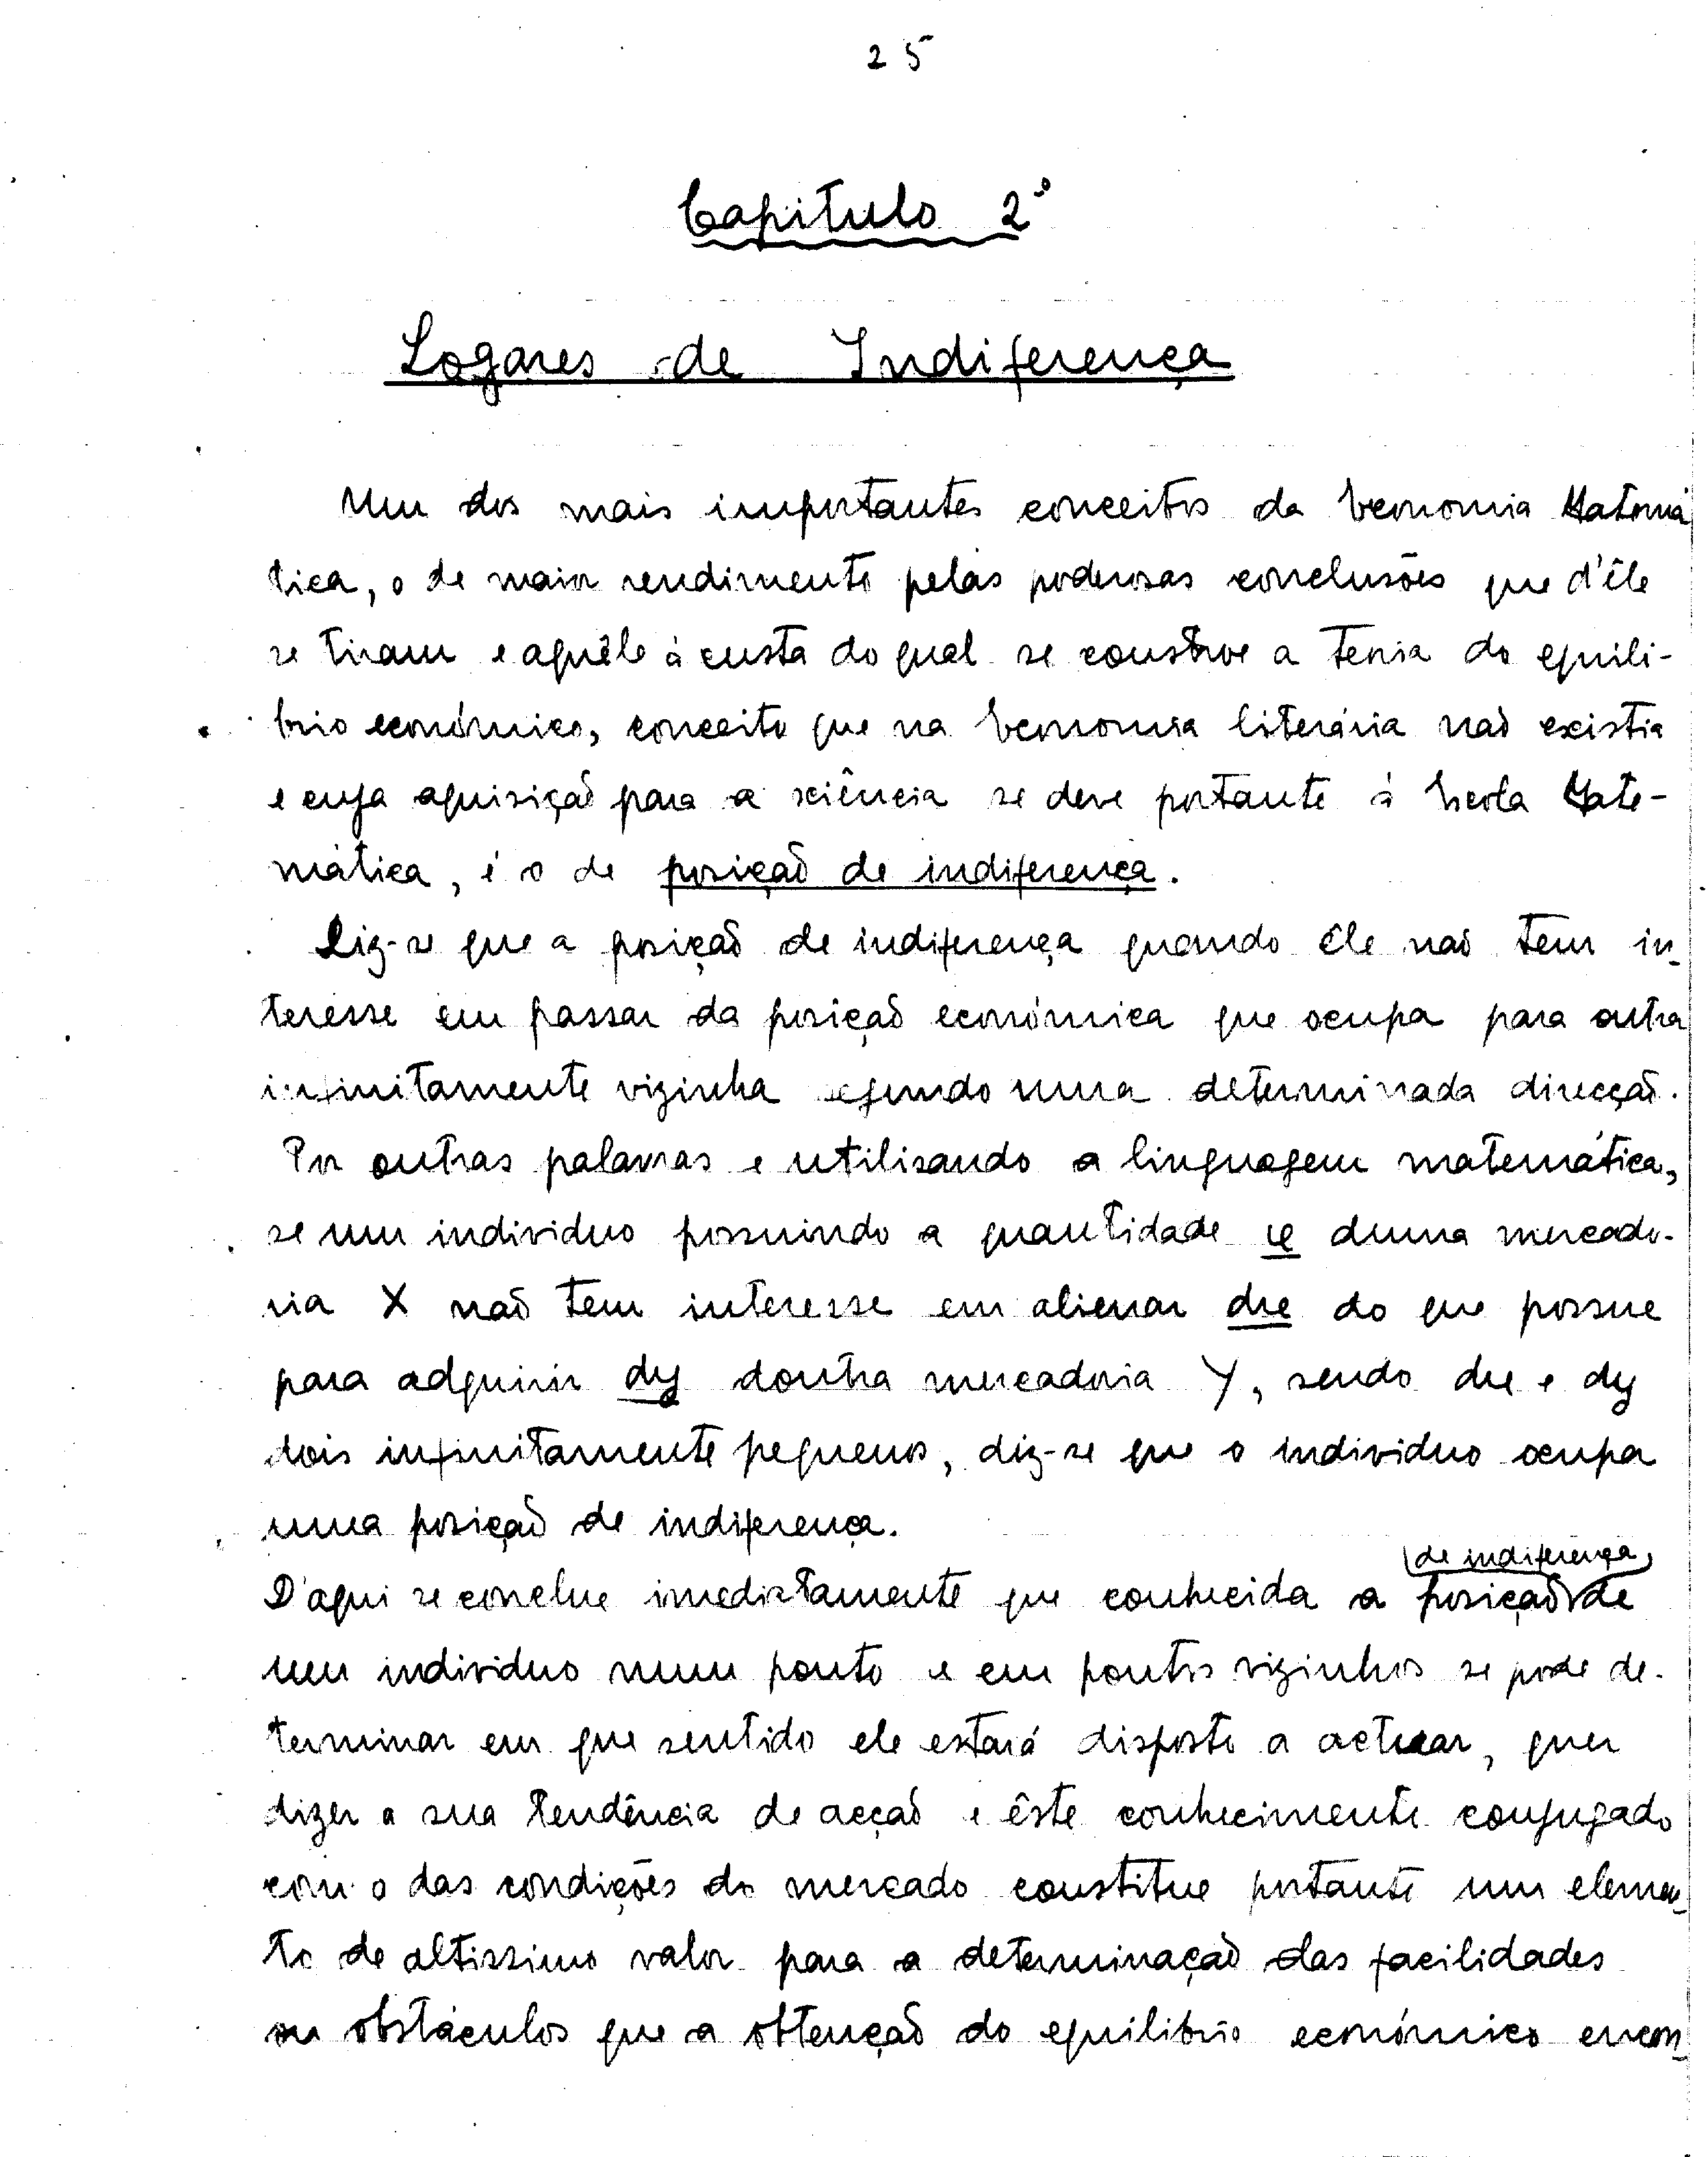 25
Capitulo 2º
Logares de Indiferença
Um dos mais importantes conceitos da Economia Matemá
tica, o de maior rendimento pelas poderosas conclusões que d'êle
se tiram e aquêle à custa do qual se constroe a teoria do equili-
brio económico, conceito que na Economia literária não existia
e cuja aquisição para a sciência se deve portanto á Escola Mate-
mática, é o de posição de indiferença.
Diz-se que a posição de indiferença quando êle não tem in-
teresse em passar da posição económica que ocupa para outra
infinitamente vizinha segundo uma determinada direcção.
Por outras palavras e utilisando a linguagem matemática,
se um individuo possuindo a quantidade x duma mercado-
ria X não tem interesse em alienar dx do que possue
para adquirir dy doutra mercadoria Y, sendo dx e dy
dois infinitamente pequenos, diz-se que o individuo ocupa
uma posição de indiferença.
de indiferença
D'aqui se conclue imediatamente que conhecida a posição de
um individuo num ponto e em pontos vizinhos se pode de-
terminar em que sentido ele estará disposto a actuar, quer
dizer a sua tendência de acção e êste conhecimento conjugado
com o das condições do mercado constitue portanto um elemen-
to de altissimo valor para a determinação das facilidades
ou obstáculos que a obtenção do equilibrio económico encon-